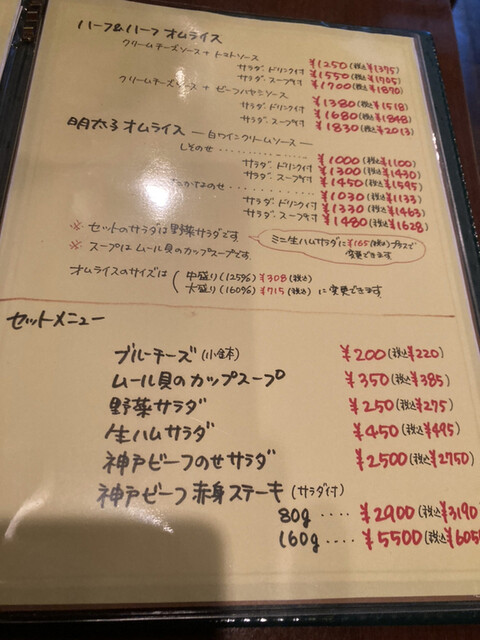 ハーフ&ハーフ オムライス
クリームチーズソース + トマトソース
‥‥‥‥ ¥1250(税込¥1375)
サラダ・ドリンク付 ¥1550(税込¥1705)
サラダ・スープ付 ¥1700(税込¥1870)
クリームチーズソース + ビーフハヤシソース
‥‥‥‥ ¥1380(税込¥1518)
サラダ・ドリンク付 ¥1680(税込¥1848)
サラダ・スープ付 ¥1830(税込¥2013)
明太子オムライス ー白ワインクリームソースー
しそのせ ‥‥‥‥ ¥1000(税込¥1100)
サラダ・ドリンク付 ¥1300(税込¥1430)
サラダ・スープ付 ¥1450(税込¥1595)
たかなのせ ‥‥‥‥ ¥1030(税込¥1133)
サラダ・ドリンク付 ¥1330(税込¥1463)
サラダ・スープ付 ¥1480(税込¥1628)
※ セットのサラダは野菜サラダです
※ スープはムール貝のカップスープです。
ミニ生ハムサラダに¥165(税込)プラスで
変更できます
オムライスのサイズは
中盛り(125%)¥308(税込)
大盛り(160%)¥715(税込)
に変更できます
セットメニュー
ブルーチーズ(小鉢) ¥200(税込¥220)
ムール貝のカップスープ ¥350(税込¥385)
野菜サラダ ¥250(税込¥275)
生ハムサラダ ¥450(税込¥495)
神戸ビーフのせサラダ ¥2500(税込¥2750)
神戸ビーフ赤身ステーキ(サラダ付)
80g ‥‥ ¥2900(税込¥3190)
160g ‥‥ ¥5500(税込¥6050